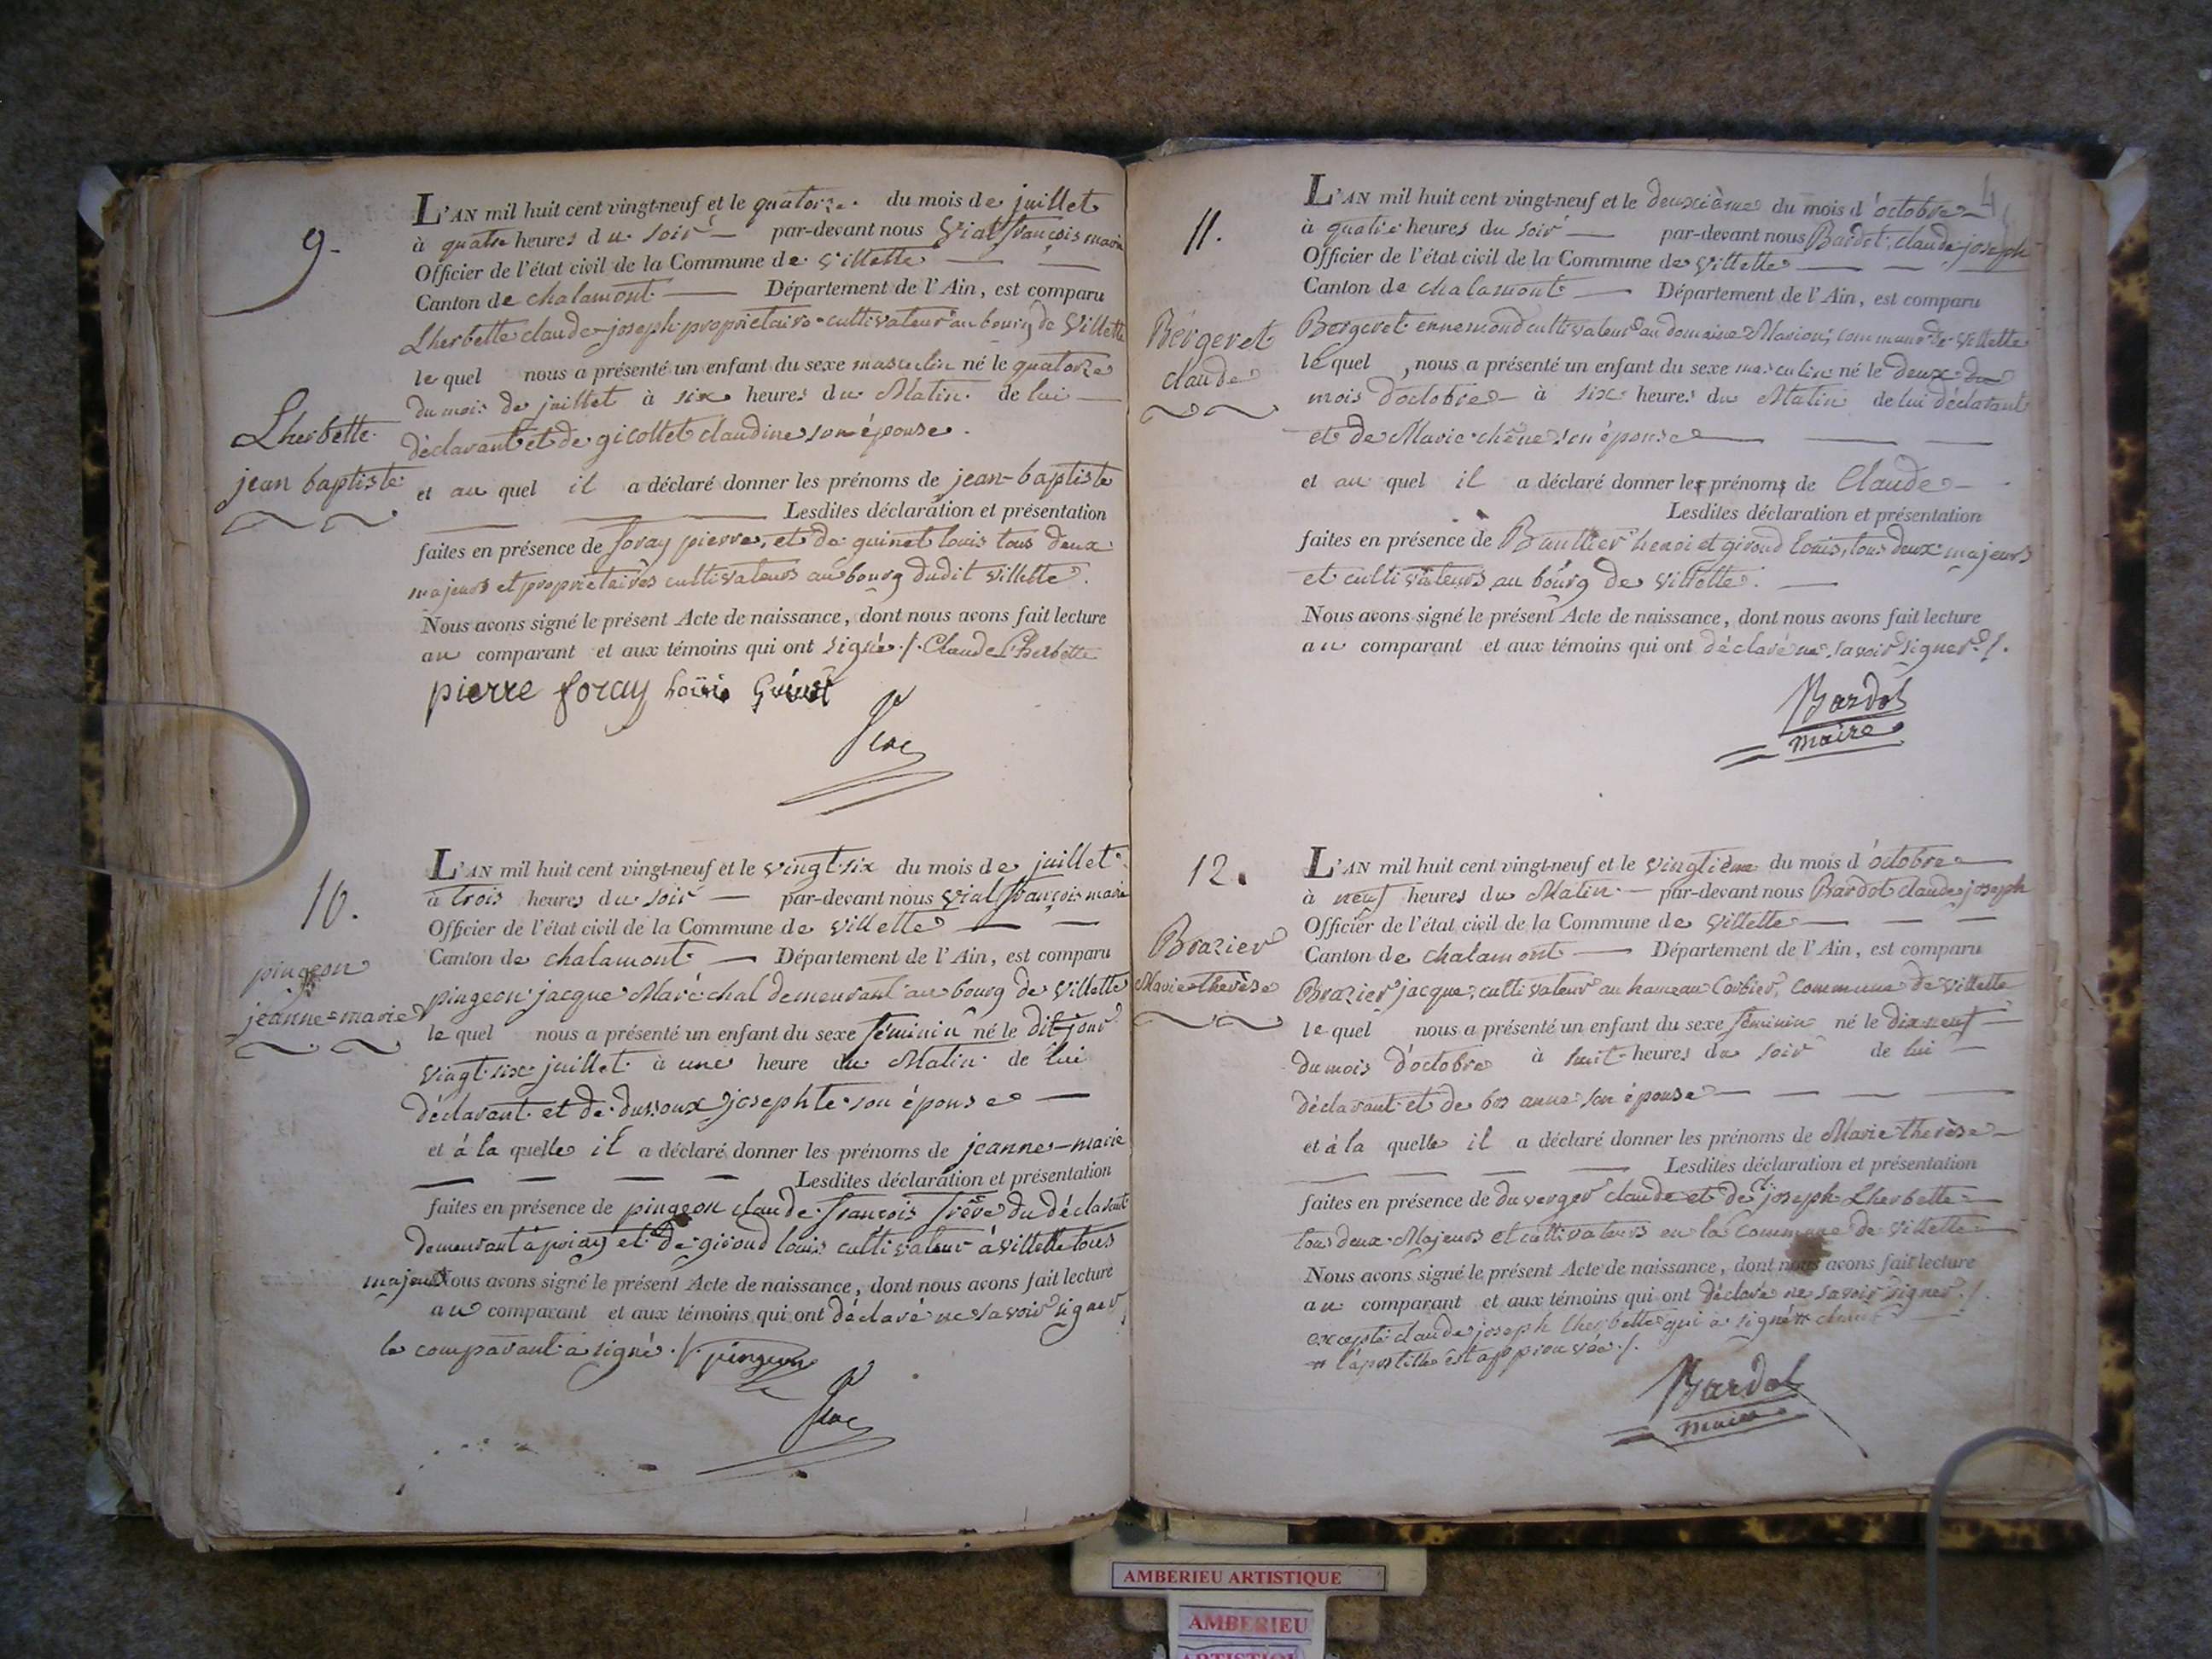 9.
Lherbette
jean baptiste
L'AN mil huit cent vingt-neuf et le quatorze du mois de juillet
à quatre heures du soir par-devant nous Vial françois marie
Officier de l'état civil de la Commune de Villette
Canton de chalamont Département de l'Ain, est comparu
Lherbette claude-joseph proprietaire cultivateur au bourg de Villette
lequel nous a présenté un enfant du sexe masculin né le quatorze
du mois de juillet à six heures du Matin de lui
déclarant et de gicollet claudine son épouse.
et au quel il a déclaré donner les prénoms de jean-baptiste
Lesdites déclaration et présentation
faites en présence de foray pierre, et de guinet louis tous deux
majeurs et proprietaires cultivateurs au bourg dudit villette.
Nous avons signé le présent Acte de naissance, dont nous avons fait lecture
au comparant et aux témoins qui ont signé ./. Claude Lherbette
pierre foray Louis Guinet
10.
pingeon
jeanne=marie
L'AN mil huit cent vingt-neuf et le vingt-six du mois de juillet
à trois heures du soir par-devant nous Vial françois marie
Officier de l'état civil de la Commune de Villette
Canton de chalamont Département de l'Ain, est comparu
pingeon jacque Maréchal demeurant au bourg de Villette
lequel nous a présenté un enfant du sexe féminin né le dit jour
vingt-six juillet à une heure du Matin de lui
déclarant et de dussoux josephte son épouse
et à la quelle il a déclaré donner les prénoms de jeanne-marie
Lesdites déclaration et présentation
faites en présence de pingeon claude françois frère du déclarant
demeurant à et de giroud louis cultivateur à villette tous
majeurs Nous avons signé le présent Acte de naissance, dont nous avons fait lecture
au comparant et aux témoins qui ont déclaré ne savoir signer
le comparant a signé ./. pingeon
4
11.
Bergeret
claude
L'AN mil huit cent vingt-neuf et le deuxième du mois d'octobre
à quatre heures du soir par-devant nous Bardot claude joseph
Officier de l'état civil de la Commune de Villette
Canton de chalamont Département de l'Ain, est comparu
Bergeret ennemond cultivateur au domaine Marion, commune de Villette
lequel , nous a présenté un enfant du sexe masculin né le deux du
mois d'octobre à six heures du Matin de lui déclarant
et de Marie chêne son épouse
et au quel il a déclaré donner les prénoms de Claude
Lesdites déclaration et présentation
faites en présence de henri et giroud louis, tous deux majeurs
et cultivateurs au bourg de Villette.
Nous avons signé le présent Acte de naissance, dont nous avons fait lecture
au comparant et aux témoins qui ont déclaré ne savoir signer ./.
Bardot
maire
12.
Brazier
Marie therèse
L'AN mil huit cent vingt-neuf et le vingtième du mois d'octobre
à neuf heures du Matin par-devant nous Bardot claude joseph
Officier de l'état civil de la Commune de Villette
Canton de chalamont Département de l'Ain, est comparu
Brazier jacque, cultivateur au hameau Corbier, commune de Villette
lequel nous a présenté un enfant du sexe féminin né le dix neuf
du mois d'octobre à huit heures du soir de lui
déclarant et de bos anne son épouse
et à la quelle il a déclaré donner les prénoms de Marie therèse
Lesdites déclaration et présentation
faites en présence de duverger claude et de joseph Lherbette
tous deux Majeurs et cultivateurs en la commune de Villette
Nous avons signé le présent Acte de naissance, dont nous avons fait lecture
au comparant et aux témoins qui ont déclaré ne savoir signer ./.
excepté claude joseph Lherbette qui a signé
l'apostille est approuvée ./.
Bardot
maire
AMBERIEU ARTISTIQUE
AMBERIEU
ARTISTIQUE